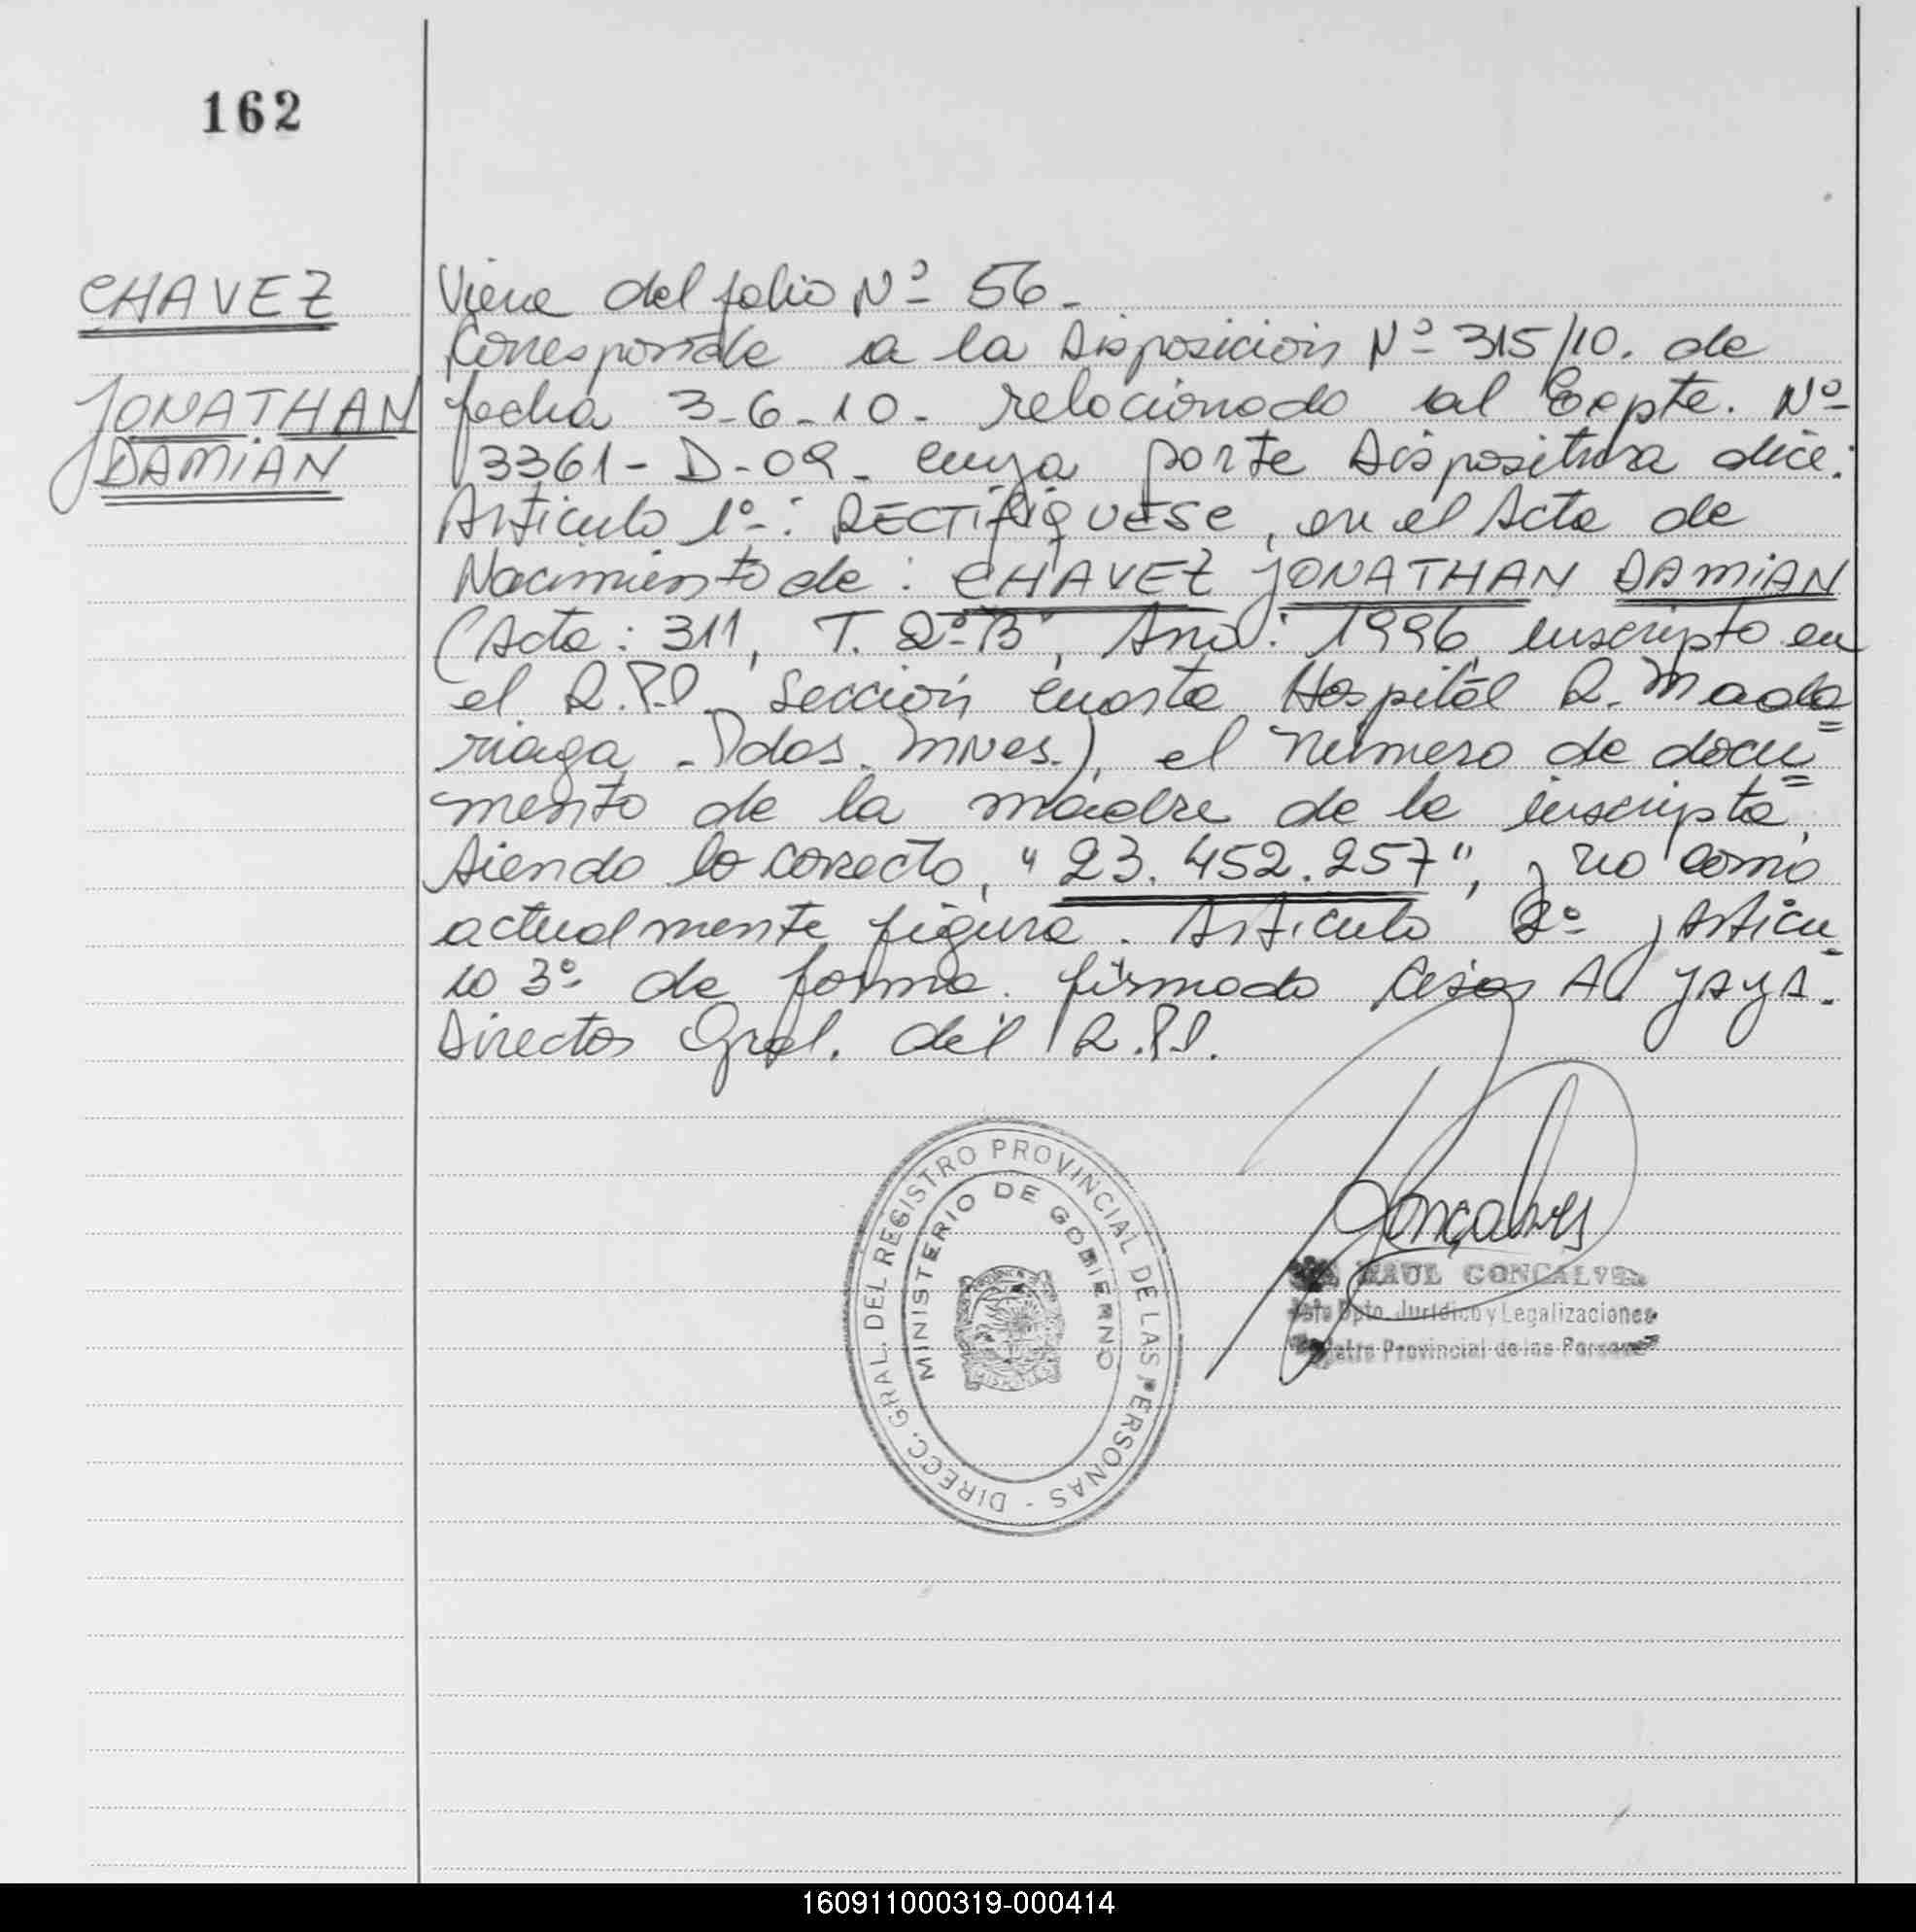 162
CHAVEZ
JONATHAN
DAMIAN
Viene del folio Nº 56-
Corresponde a la Disposición Nº 315/10. de
fecha 3-6-10- relacionado al Expte. Nº
3361-D-09- cuya parte Dispositiva dice:
Artículo 1º: RECTIFIQUESE, en el Acta de
Nacimiento de: CHAVEZ JONATHAN DAMIAN
(Acta: 311, T. 2º"B", Año: 1996, inscripto en
el R.P.P. Sección cuarta Hospital R. Mada=
riaga - Pdas. Mnes.), el número de docu=
mento de la madre de la inscripta,
siendo lo correcto, "23.452.257", y no como
actualmente figura. Artículo 2º y Artícu-
lo 3º de forma. firmado César A. JAYA.
Director Gral. del R.P.P.
DIRECC. GRAL. DEL REGISTRO PROVINCIAL DE LAS PERSONAS -
MINISTERIO DE GOBIERNO
MISIONES
Goncalves
RAUL GONCALVES
Jefe Dpto. Jurídico y Legalizaciones
Registro Provincial de las Personas
160911000319-000414